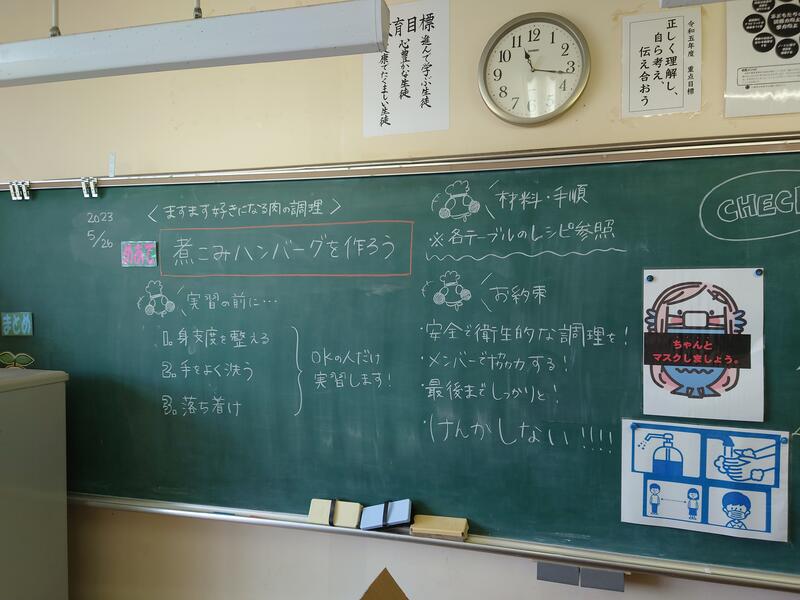 教育目標
進んで学ぶ生徒
心豊かな生徒
健康でたくましい生徒
12
1
2
3
4
5
6
7
8
9
10
11
令和五年度 重点目標
正しく理解し、
自ら考え、
伝え合おう
2023
5/26
<ますます好きになる肉の調理>
めあて
煮こみハンバーグを作ろう
まとめ
実習の前に…
1. 身支度を整える
2. 手をよく洗う
3. 落ち着け
OKの人だけ
実習します!
材料・手順
※各テーブルのレシピ参照
お約束
・安全で衛生的な調理を!
・メンバーで協力する!
・最後までしっかりと!
・けんかしない!!!!
CHECK
ちゃんと
マスクしましょう。